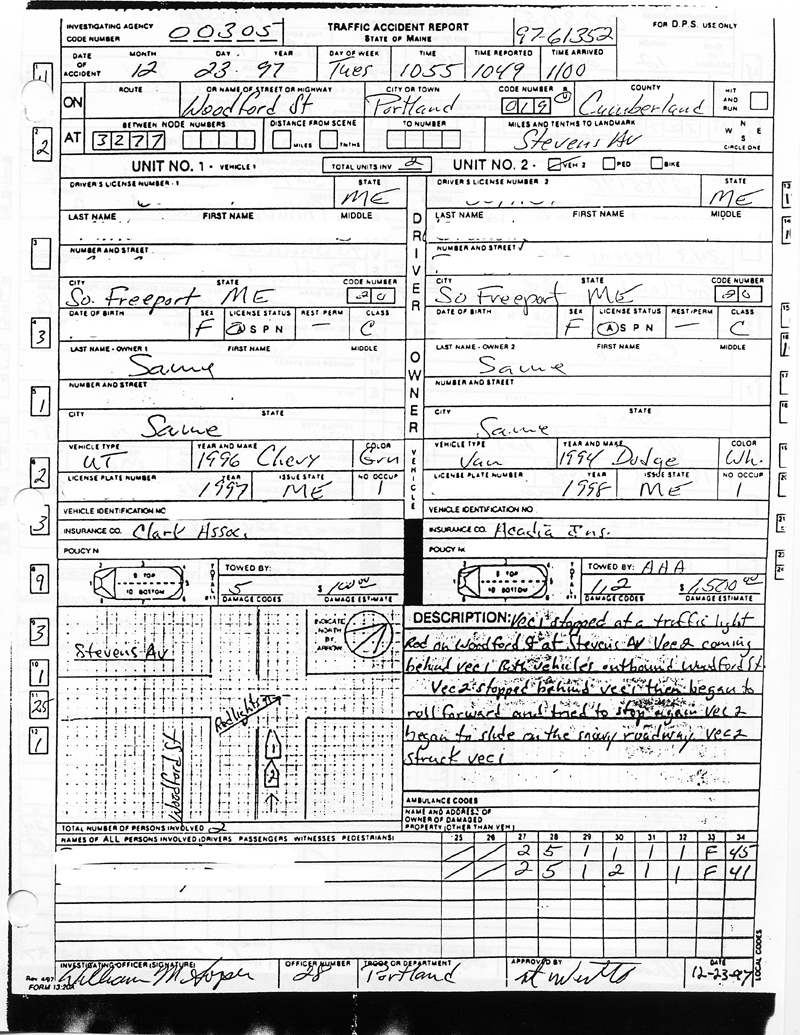 INVESTIGATING AGENCY CODE NUMBER 00305 TRAFFIC ACCIDENT REPORT STATE OF MAINE 97-61352 FOR D.P.S. USE ONLY
DATE OF ACCIDENT MONTH 12 DAY 23 YEAR 97 DAY OF WEEK Tues TIME 1055 TIME REPORTED 1049 TIME ARRIVED 1100
ON ROUTE OR NAME OF STREET OR HIGHWAY Woodford St CITY OR TOWN Portland CODE NUMBER 019 COUNTY Cumberland HIT AND RUN
AT BETWEEN NODE NUMBERS 3277 DISTANCE FROM SCENE MILES TNTHS TO NUMBER MILES AND TENTHS TO LANDMARK Stevens Av N W E S CIRCLE ONE
UNIT NO. 1 - VEHICLE 1 TOTAL UNITS INV 2 UNIT NO. 2 - VEH 2 PED BIKE
DRIVER'S LICENSE NUMBER - 1 STATE ME DRIVER'S LICENSE NUMBER 2 STATE ME
DRIVER
LAST NAME FIRST NAME MIDDLE LAST NAME FIRST NAME MIDDLE
NUMBER AND STREET NUMBER AND STREET
CITY So. Freeport STATE ME CODE NUMBER 20 CITY So Freeport STATE ME CODE NUMBER 20
DATE OF BIRTH SEX F LICENSE STATUS A S P N REST/PERM — CLASS C DATE OF BIRTH SEX F LICENSE STATUS A S P N REST/PERM — CLASS C
OWNER
LAST NAME - OWNER 1 FIRST NAME MIDDLE Same LAST NAME - OWNER 2 FIRST NAME MIDDLE Same
NUMBER AND STREET NUMBER AND STREET
CITY STATE Same CITY STATE Same
VEHICLE
VEHICLE TYPE UT YEAR AND MAKE 1996 Chevy COLOR Grn VEHICLE TYPE Van YEAR AND MAKE 1994 Dodge COLOR Wh.
LICENSE PLATE NUMBER YEAR 1997 ISSUE STATE ME NO OCCUP 1 LICENSE PLATE NUMBER YEAR 1998 ISSUE STATE ME NO OCCUP 1
VEHICLE IDENTIFICATION NO VEHICLE IDENTIFICATION
INSURANCE CO. Clark Assoc. INSURANCE CO. Acadia Ins.
POLICY N POLICY N
9 TOP 10 BOTTOM TOWED BY: 5 DAMAGE CODES $ 100.00 DAMAGE ESTIMATE 9 TOP 10 BOTTOM TOWED BY: AAA 1,2 DAMAGE CODES $ 1,500.00 DAMAGE ESTIMATE
INDICATE NORTH BY ARROW
Stevens Av
Red lights
Woodford St
1
2
DESCRIPTION: Vec 1 stopped at a traffic light
Red on Woodford St at Stevens Av Vec 2 coming
behind vec 1 Both vehicles outbound Woodford St.
Vec 2 stopped behind vec 1 then began to
roll forward and tried to stop again Vec 2
began to slide on the snowy roadway. Vec 2
struck vec 1
AMBULANCE CODES
NAME AND ADDRESS OF OWNER OF DAMAGED PROPERTY (OTHER THAN VEH)
TOTAL NUMBER OF PERSONS INVOLVED 2
NAMES OF ALL PERSONS INVOLVED (DRIVERS PASSENGERS WITNESSES PEDESTRIANS) 25 26 27 28 29 30 31 32 33 34
2 5 1 1 1 1 F 45
2 5 1 2 1 1 F 41
INVESTIGATING OFFICER (SIGNATURE) William M OFFICER NUMBER 28 TROOP OR DEPARTMENT Portland APPROVED BY DATE 12-23-97
LOCAL CODES
Rev 4/97
FORM 13:20A